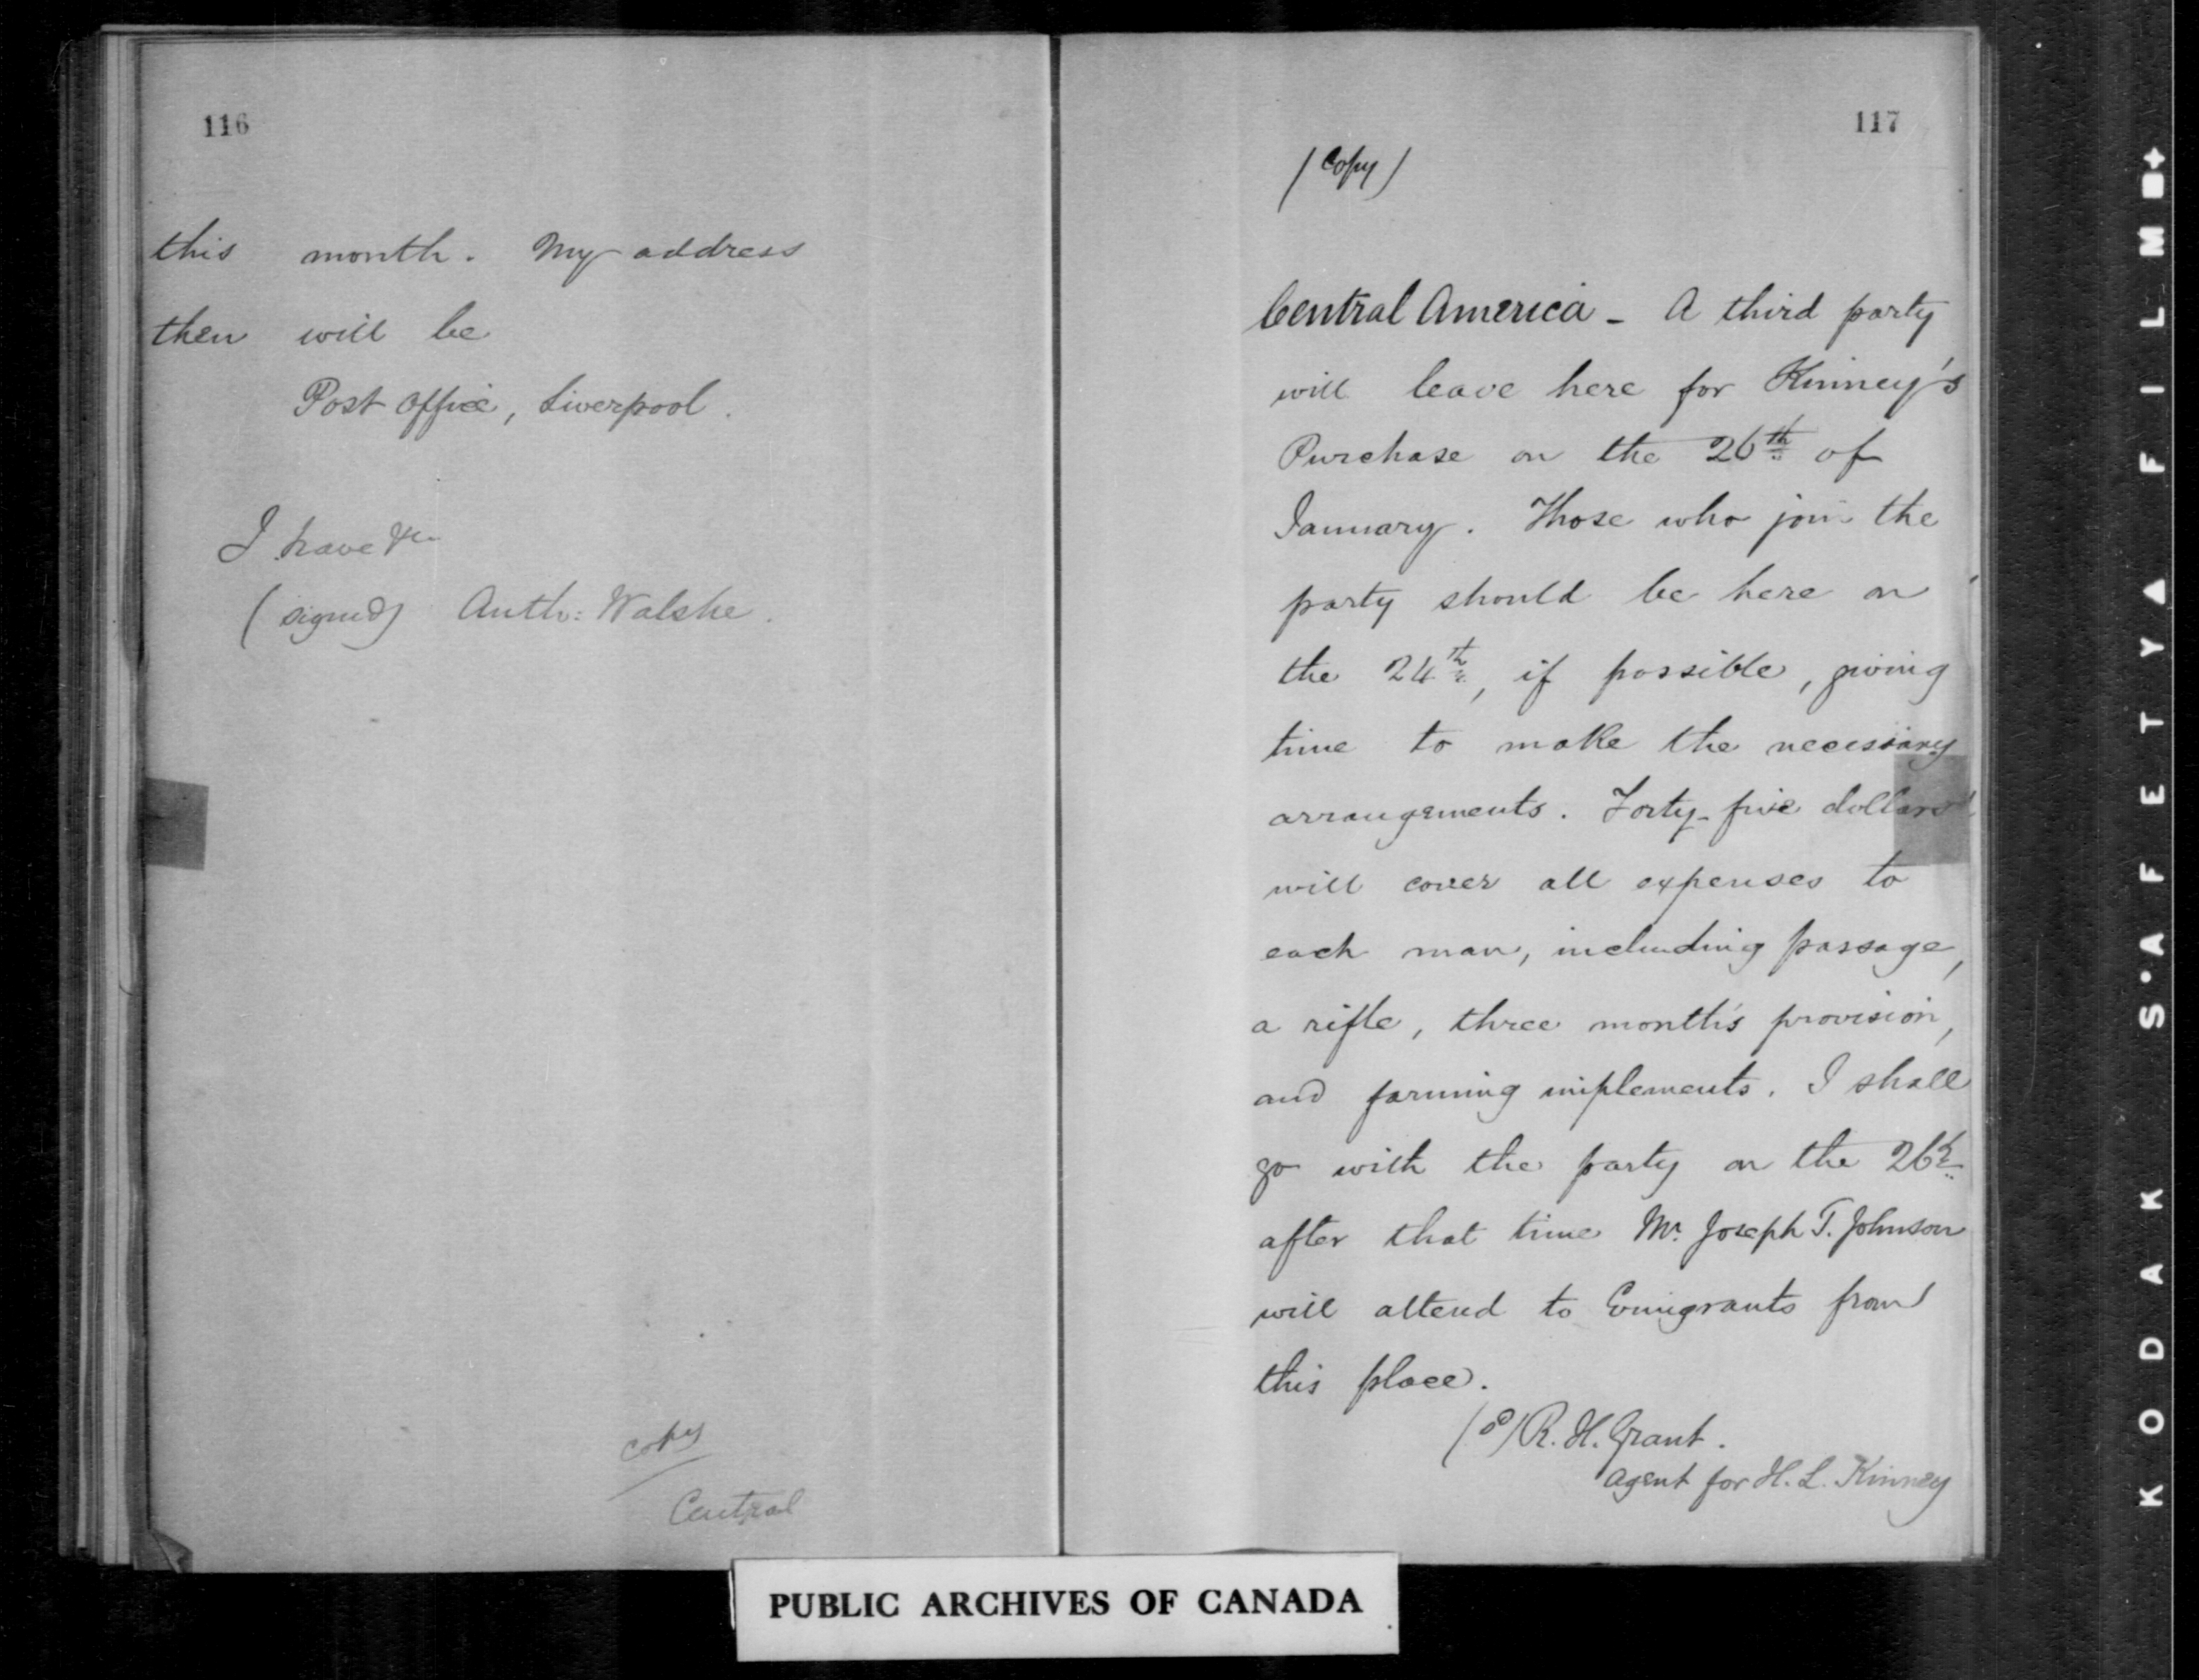 116
this month. My address
then will be
Post Office, Liverpool.
I have &c
(signed) Anth: Walshe.
copy
Central
117
(Copy)
Central America - A third party
will leave here for Kinney's
Purchase on the 26th of
January. Those who join the
party should be here on
the 24th, if possible, giving
time to make the necessary
arrangements. Forty-five dollars
will cover all expenses to
each man, including passage,
a rifle, three month's provision,
and farming implements. I shall
go with the party on the 26th
after that time Mr. Joseph T. Johnson
will attend to Emigrants from
this place.
(S) R. H. Grant.
Agent for H. L. Kinney
PUBLIC ARCHIVES OF CANADA
KODAK S'AFETY FILM